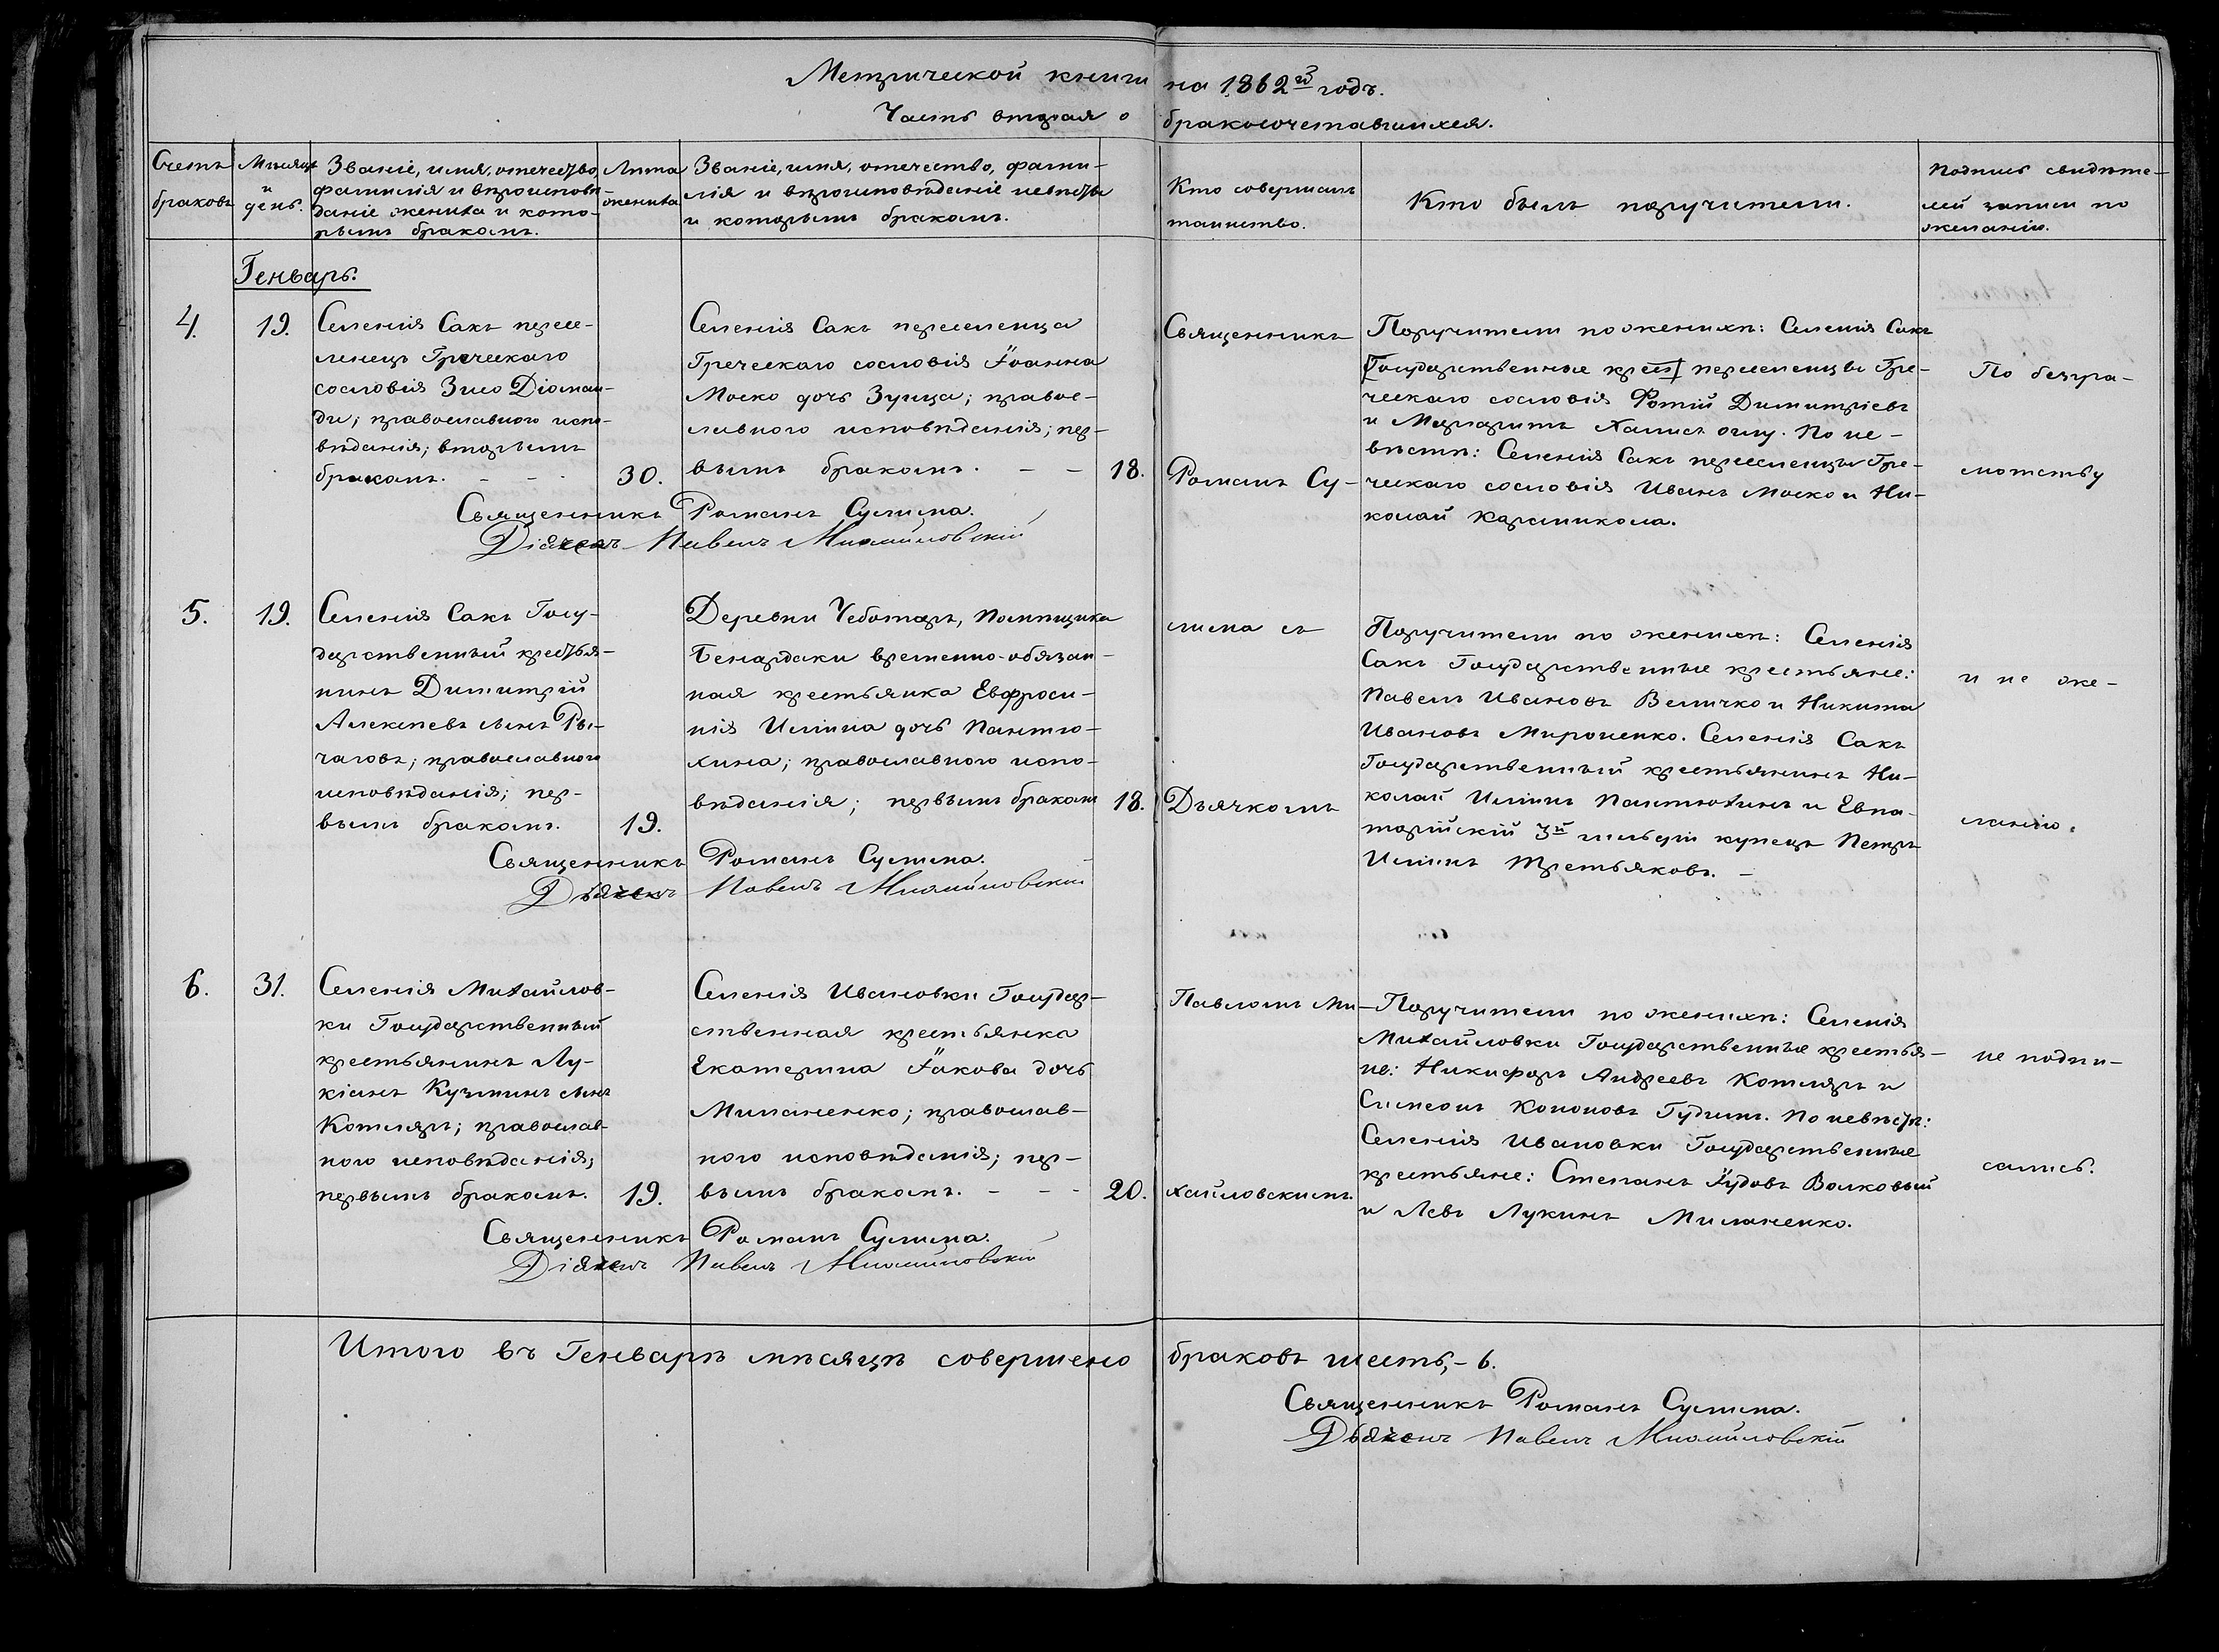 Метрической книги на 1862й годъ.
Часть вторая о бракосочетавшихся.
Счетъ браковъ
Мѣсяцъ и день.
Званіе, имя, отечество,
фамилія и вѣроисповѣ-
даніе жениха и кото-
рымъ бракомъ.
Лѣта
жениха
Званіе, имя, отечество, фами-
лія и вѣроисповѣданіе невѣсты
и которымъ бракомъ.
Кто совершалъ
таинство.
Кто былъ поручители.
Подпись свидѣте-
лей записи по
желанію.
Генварь.
4.
19.
Селенія Сакъ пересе-
ленецъ Греческаго
сословія Зисо Діоман-
ди; православного испо-
вѣданія; вторымъ
бракомъ. - - -
30.
Селенія Сакъ переселенца
Греческаго сословія Іоанна
Моско дочь Зуица; правос-
лавного исповѣданія; пер-
вымъ бракомъ. - -
18.
Священникъ Романъ Сулима.
Діячекъ Павелъ Михайловскій
Священникъ
Романъ Су-
Поручители по женихѣ: Селенія Сакъ
[Государственные крест] переселенцы Гре-
ческаго сословія Фотій Димитріевъ
и Маргаритъ Халисъ оглу. По не-
вѣстѣ: Селенія Сакъ переселенцы Гре-
ческаго сословія Иванъ Моско и Ни-
колай Карамикола.
По безгра-
мотству
5.
19.
Селенія Сакъ Госу-
дарственный крестья-
нинъ Димитрій
Алексѣевъ сынъ Ры-
чаговъ; православного
исповѣданія; пер-
вымъ бракомъ.
19.
Деревни Чеботаръ, помѣщика
Бенардаки временно-обязан-
ная крестьянка Евфроси-
нія Ильина дочь Пантю-
хина; православного испо-
вѣданія; первымъ бракомъ
18.
Священникъ Романъ Сулима.
Дьячекъ Павелъ Михайловскій
лима съ
Дьячкомъ
Поручители по женихѣ: Селенія
Сакъ Государственные крестьяне:
Павелъ Ивановъ Величко и Никита
Ивановъ Мироненко. Селенія Сакъ
Государственный крестьянинъ Ни-
колай Ильинъ Пантюхинъ и Евпа-
торійскій 3й гильдіи купецъ Петръ
Ильинъ Третьяковъ. -
и не же-
ланію.
6.
31.
Селенія Михайлов-
ки Государственный
крестьянинъ Лу-
кіанъ Кузминъ сынъ
Котляръ; православ-
ного исповѣданія;
первымъ бракомъ.
19.
Селенія Ивановки Государ-
ственная крестьянка
Екатерина Іакова дочь
Миланенко; православ-
ного исповѣданія; пер-
вымъ бракомъ. - - -
20.
Священникъ Романъ Сулима.
Діячекъ Павелъ Михайловскій
Павломъ Ми-
хайловскимъ.
Поручители по женихѣ: Селенія
Михайловки Государственные крестья-
не: Никифоръ Андреевъ Котляръ и
Симеонъ Кононовъ Гудимъ. По невѣстѣ:
Селенія Ивановки Государственные
крестьяне: Степанъ Іудовъ Волковый
и Левъ Лукинъ Миланенко.
не подпи-
сались.
Итого въ Генварѣ мѣсяцѣ совершено браковъ шесть, - 6.
Священникъ Романъ Сулима.
Дьячекъ Павелъ Михайловскій